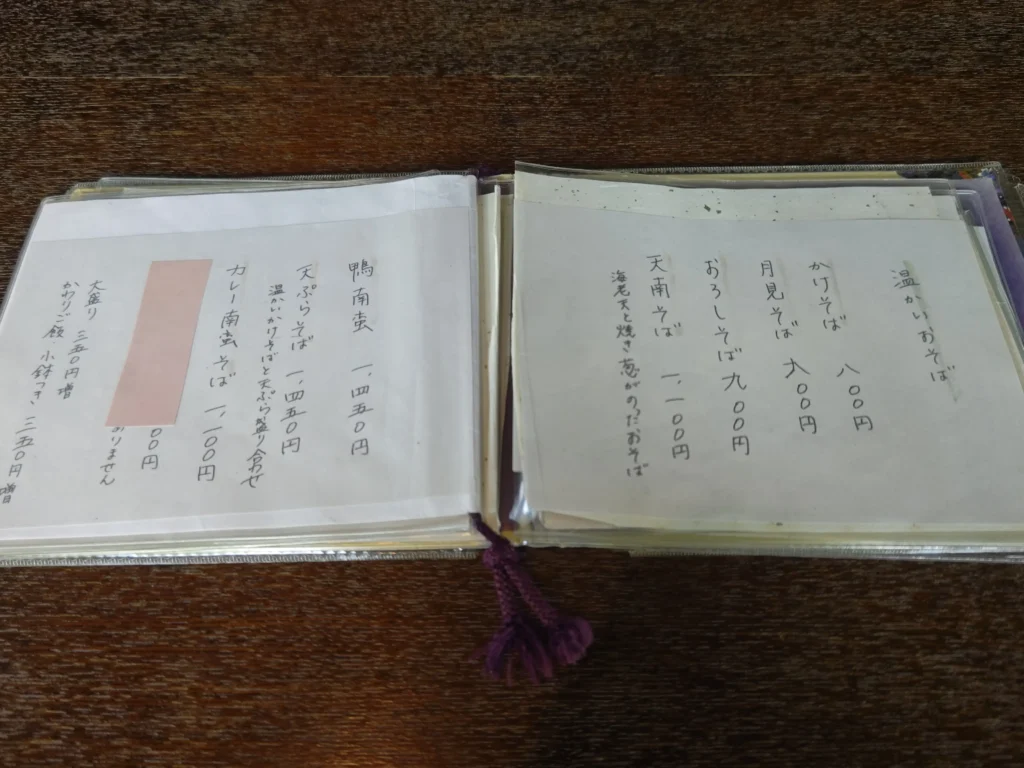 温かいおそば
かけそば 八〇〇円
月見そば 九〇〇円
おろしそば 九〇〇円
天南そば 一、一〇〇円
海老天と焼き葱がのったおそば
鴨南蛮 一、四五〇円
天ぷらそば 一、四五〇円
温かいかけそばと天ぷら盛り合わせ
カレー南蛮そば 一、一〇〇円
〇〇円
おりません
大盛り 三五〇円増
かわりご飯 小鉢つき 二五〇円増